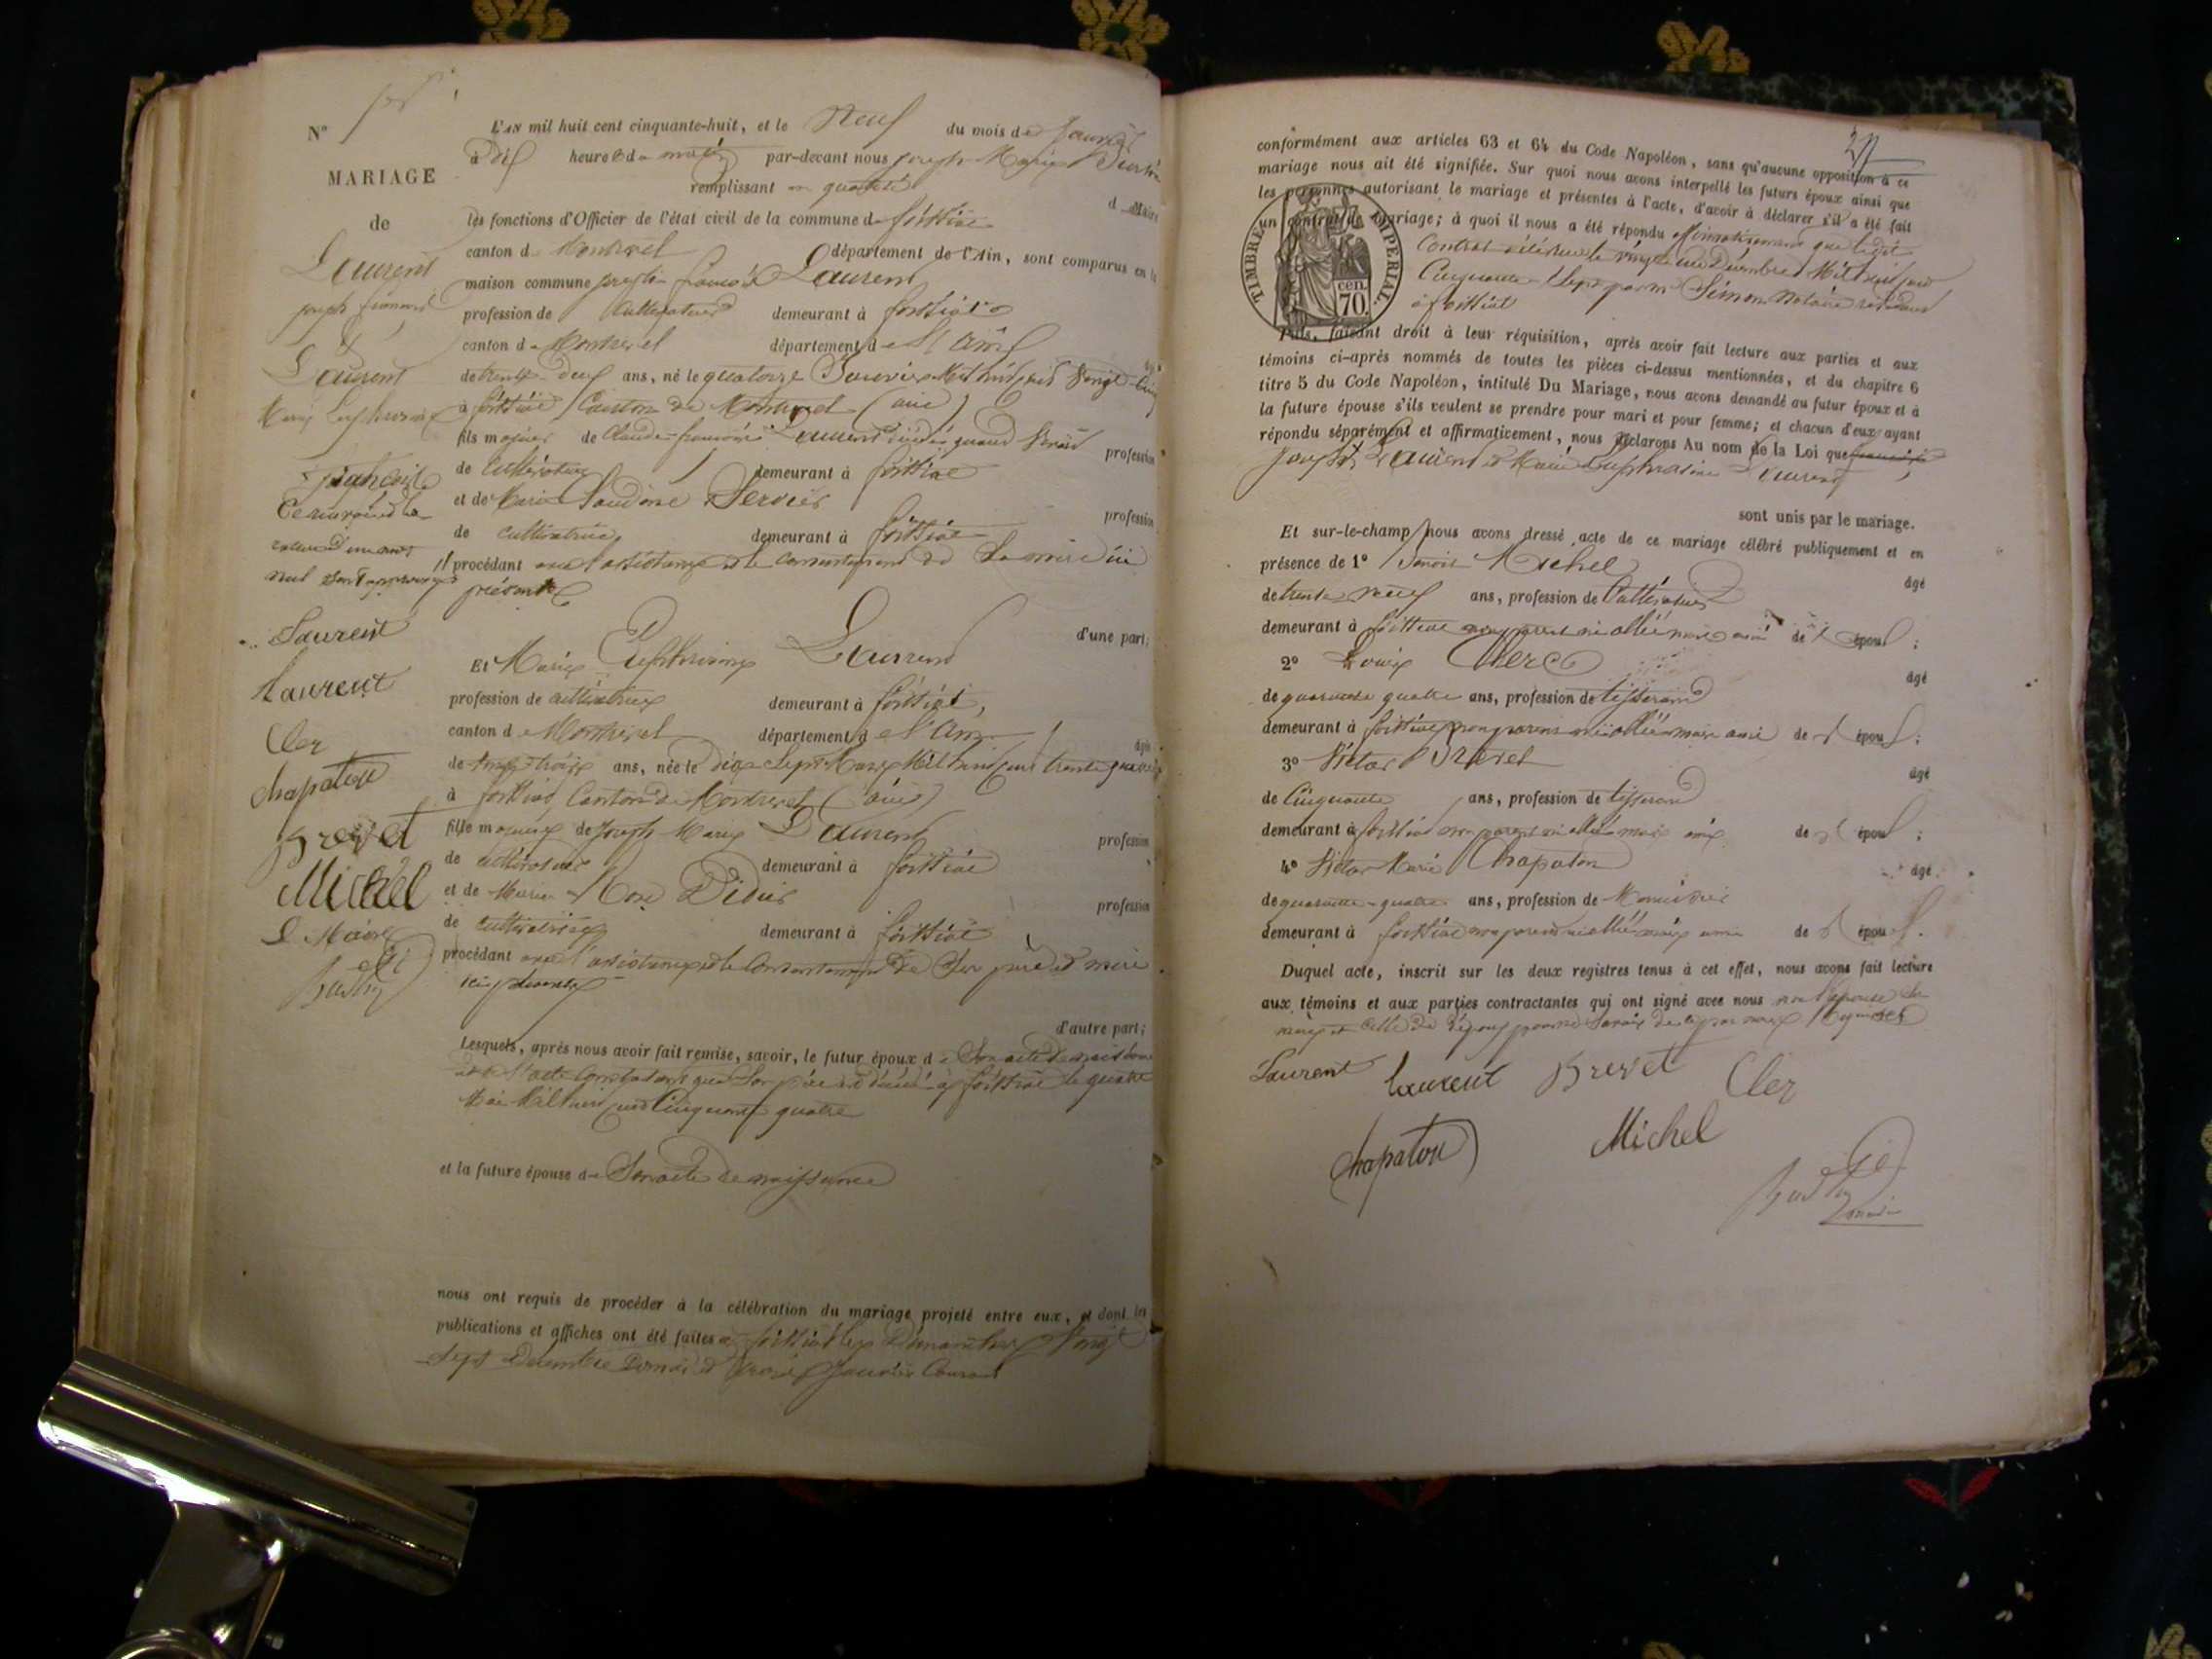 N° 1er
MARIAGE
de
Laurent
joseph francois
&
Laurent
Marie Euphrosine
Laurent
Laurent
Cler
Chapaton
Brevet
Michel
Le Maire
L'AN mil huit cent cinquante-huit, et le Neuf du mois de Janvier
à dix heures du matin par-devant nous joseph Marie
remplissant en qualité de Maire
les fonctions d'Officier de l'état civil de la commune de foissiat
canton de Montrevel département de l'Ain, sont comparus en la
maison commune joseph francois Laurent
profession de cultivateur demeurant à foissiat
canton de Montrevel département de l'Ain
de trente deux ans, né le quatorze Janvier Mil huit cent vingt-cinq
à foissiat Canton de Montrevel (ain)
fils majeur de Claude-francois Laurent décédé quand vivait profession
de cultivateur demeurant à foissiat
et de Marie Claudine Servier profession
de cultivatrice demeurant à foissiat
procédant avec l'assistance et le consentement de Sa mère ici
présente
d'une part;
Et Marie Euphrosine Laurent
profession de cultivatrice demeurant à foissiat,
canton de Montrevel département de l'Ain âgée
de vingt trois ans, née le dix Sept Mars Mil huit cent trente quatre
à foissiat Canton de Montrevel (ain)
fille majeure de Joseph Marie Laurent profession
de cultivateur demeurant à foissiat
et de Marie Rose Didier profession
de cultivatrice demeurant à foissiat
procédant avec l'assistance et le consentement de Ses père et mère
ici présents
d'autre part;
Lesquels, après nous avoir fait remise, savoir, le futur époux de Son acte de naissance
et de l'acte Constatant que Son père est décédé à foissiat le quatre
Mai Mil huit cent Cinquante quatre
et la future épouse de Son acte de naissance
nous ont requis de procéder à la célébration du mariage projeté entre eux, et dont les
publications et affiches ont été faites à foissiat les Dimanches Vingt
Sept Décembre Dernier et trois Janvier Courant
27
conformément aux articles 63 et 64 du Code Napoléon, sans qu'aucune opposition à ce
mariage nous ait été signifiée. Sur quoi nous avons interpellé les futurs époux ainsi que
les personnes autorisant le mariage et présentes à l'acte, d'avoir à déclarer s'il a été fait
un contrat de mariage; à quoi il nous a été répondu affirmativement que ledit
Contrat a été reçu le vingt un Décembre Mil huit cent
Cinquante Sept par Me Simon Notaire résidant
à foissiat
TIMBRE IMPERIAL.
70 cen.
Puis, faisant droit à leur réquisition, après avoir fait lecture aux parties et aux
témoins ci-après nommés de toutes les pièces ci-dessus mentionnées, et du chapitre 6
titre 5 du Code Napoléon, intitulé Du Mariage, nous avons demandé au futur époux et à
la future épouse s'ils veulent se prendre pour mari et pour femme; et chacun d'eux ayant
répondu séparément et affirmativement, nous déclarons Au nom de la Loi que
joseph Laurent et Marie Euphrosine Laurent
sont unis par le mariage.
Et sur-le-champ nous avons dressé acte de ce mariage célébré publiquement et en
présence de 1° Benoit Michel âgé
de trente neuf ans, profession de Cultivateur
demeurant à foissiat non parent ni allié mais ami de l'époux;
2° Louis Clerc âgé
de quarante quatre ans, profession de tisserand
demeurant à foissiat non parent ni allié mais ami de l'époux;
3° Victor Brevet âgé
de Cinquante ans, profession de tisserand
demeurant à foissiat non parent ni allié mais ami de l'époux;
4° Victor Marie Chapaton âgé
de quarante-quatre ans, profession de Menuisier
demeurant à foissiat non parent ni allié mais ami de l'époux.
Duquel acte, inscrit sur les deux registres tenus à cet effet, nous avons fait lecture
aux témoins et aux parties contractantes qui ont signé avec nous non l'épouse sa
mère et celle de l'époux pour ne savoir de ce par nous Requises
Laurent Laurent Brevet Cler
Chapaton Michel